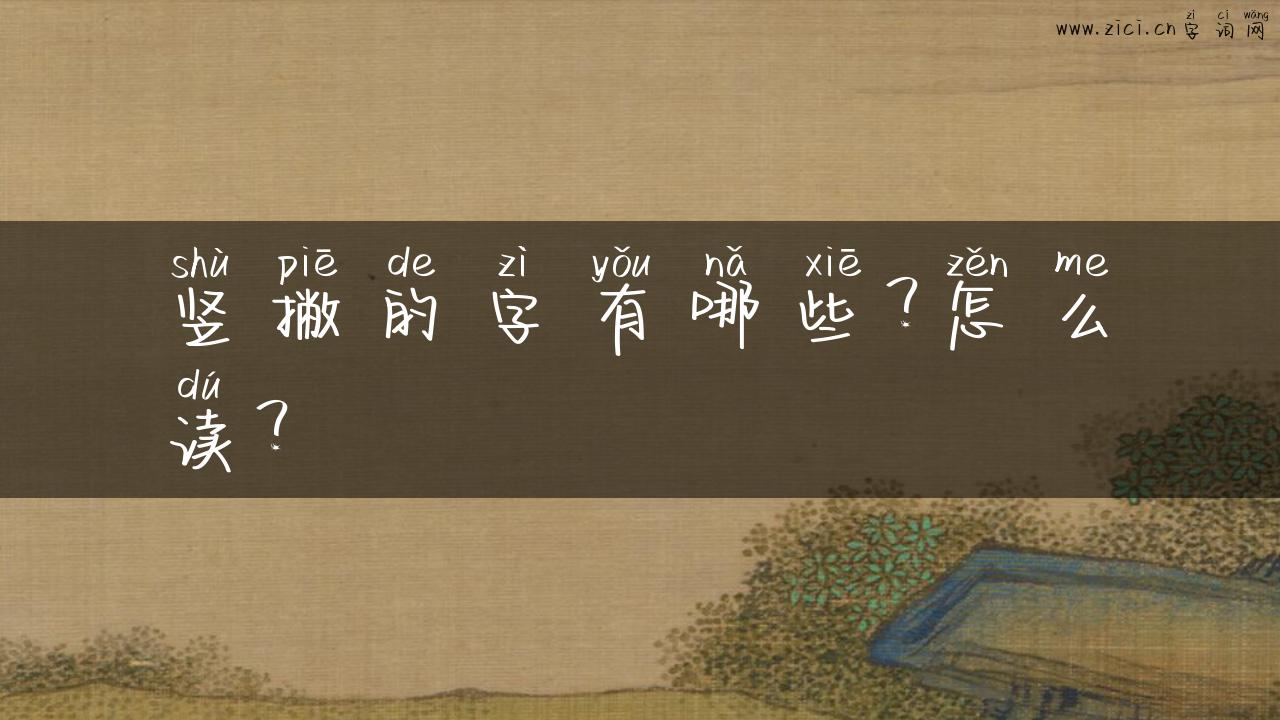 zì cí wǎng
www.zici.cn 字词网
shù piě de zì yǒu nǎ xiē zěn me
竖撇的字有哪些？怎么
dú
读？